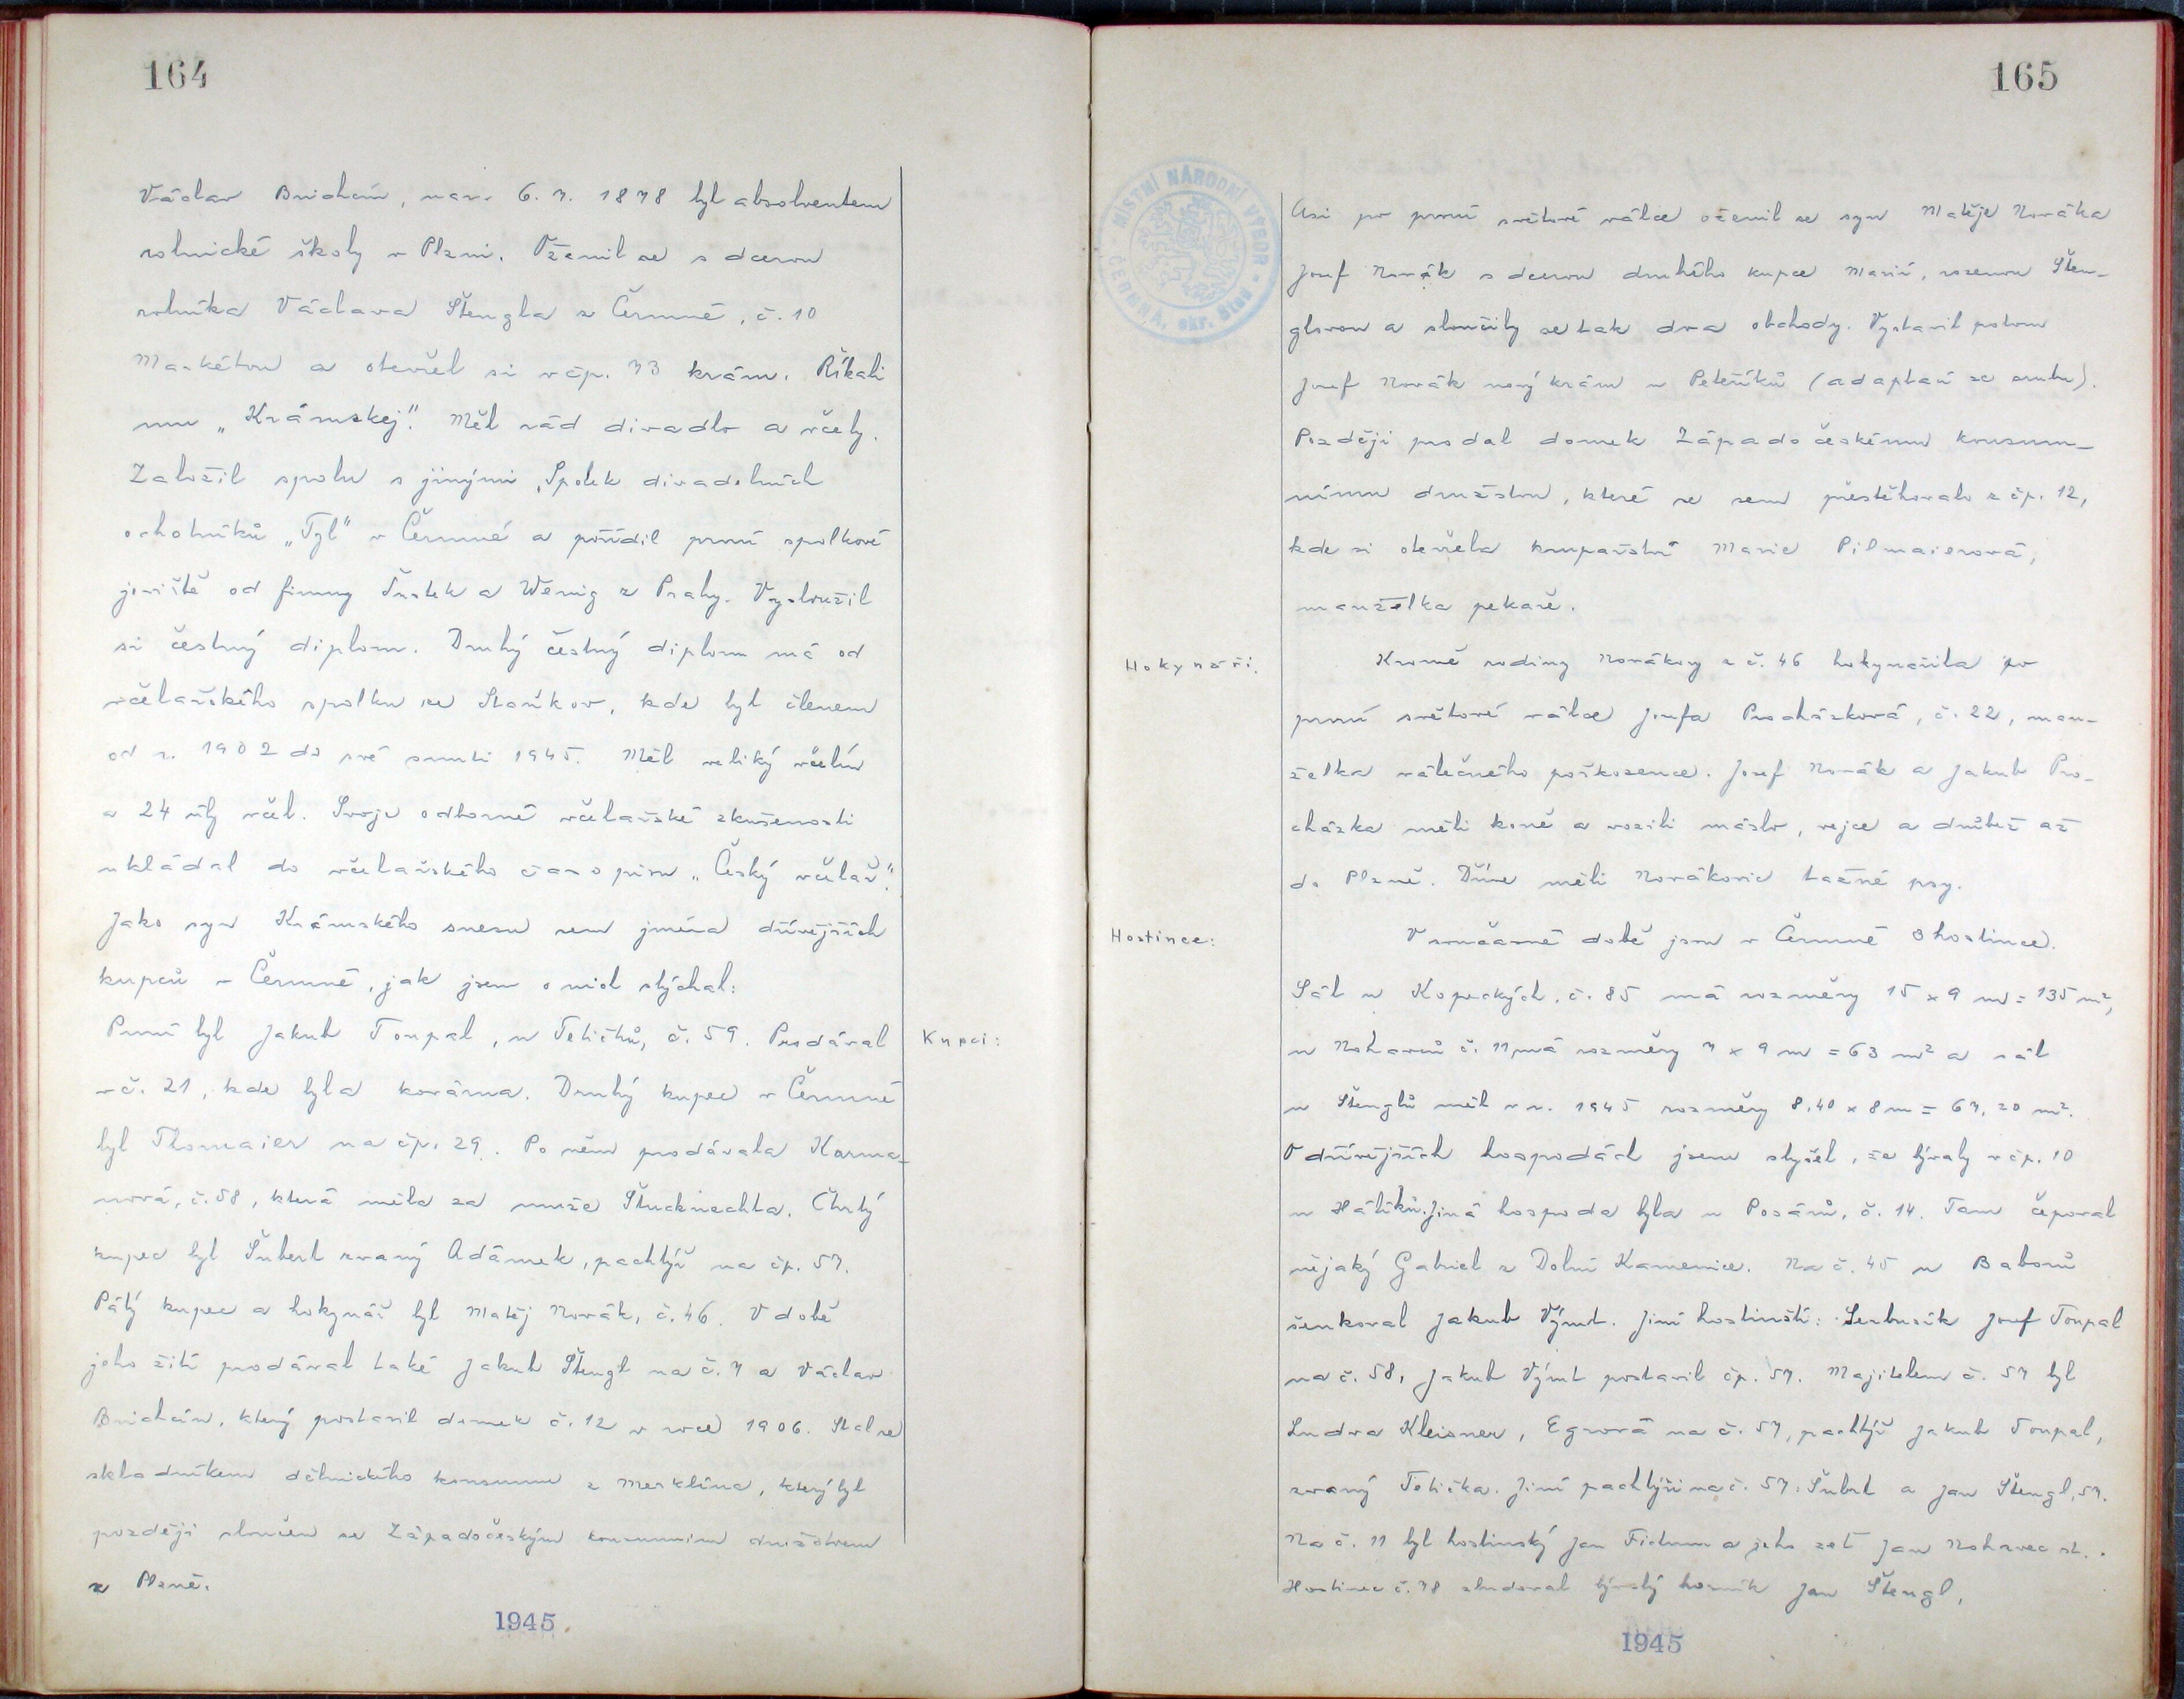 164
Václav Brichcín, nar. 6. 7. 1878 byl absolventem
rolnické školy v Plzni. Oženil se s dcerou
rolníka Václava Štengla z Čermné, č. 10
Markétou a otevřel si v čp. 73 krám. Říkali
mu „Krámskej“. Měl rád divadlo a včely.
Založil spolu s jinými „Spolek divadelních
ochotníků „Tyl“ v Čermné a pořídil první spolkové
jeviště od firmy Šustek a Wenig z Prahy. Vysloužil
si čestný diplom. Druhý čestný diplom má od
včelařského spolku ve Staňkov, kde byl členem
od r. 1902 do své smrti 1945. Měl veliký včelín
a 24 úly včel. Svoje odborné včelařské zkušenosti
ukládal do včelařského časopisu „Český včelař“.
Jako syn Krámského snesu sem jména dřívějších
kupců v Čermné, jak jsem o nich slýchal:
Kupci:
První byl Jakub Toupal, u Tetičků, č. 59. Prodával
v č. 21, kde byla kovárna. Druhý kupec v Čermné
byl Thomaier na čp. 29. Po něm prodávala Karma-
nová, č. 58, která měla za muže Štucknechta. Čtvrtý
kupec byl Šubert zvaný Adámek, pachtýř na čp. 57.
Pátý kupec a hokynář byl Matěj Novák, č. 46. V době
jeho žití prodával také Jakub Štengl na č. 7 a Václav
Brichcín, který postavil domek č. 12 v roce 1906. Stal se
skladníkem dělnického konsumu z Merklína, který byl
později sloučen se Západočeským konsumním družstvem
z Plzně.
1945
165
MÍSTNÍ NÁRODNÍ VÝBOR
ČERMNÁ, okr. Stod
Asi po první světové válce oženil se syn Matěje Nováka
Josef Novák s dcerou druhého kupce Marií, rozenou Šten-
glovou a sloučily se tak dva obchody. Vystavil potom
Josef Novák nový krám u Peteříků (adaptací ze srubu).
Později prodal domek Západočeskému konsum-
nímu družstvu, které se sem přestěhovalo z čp. 12,
kde si otevřela krupařství Marie Pilmaierová,
manželka pekaře.
Hokynáři:
Kromě rodiny Novákovy z č. 46 hokynařila po
první světové válce Josefa Procházková, č. 22, man-
želka válečného poškozence. Josef Novák a Jakub Pro-
cházka měli koně a vozili máslo, vejce a drůbež až
do Plzně. Dříve měli Novákovic tažné psy.
Hostince:
V současné době jsou v Čermné 3 hostince.
Sál u Kopeckých, č. 85 má rozměry 15 x 9 m = 135 m²,
u Nohavců č. 11 má rozměry 7 x 9 m = 63 m² a sál
u Štenglů měl v r. 1945 rozměry 8,40 x 8 m = 67,20 m².
O dřívějších hospodách jsem slyšel, že bývaly v čp. 10
u Hálíků. Jiná hospoda byla u Posánů, č. 14. Tam čepoval
nějaký Gabriel z Dolní Kamenice. Na č. 45 u Baborů
šenkoval Jakub Výmt. Jiní hostinští: Serbusík Josef Toupal
na č. 58, Jakub Výmt postavil čp. 57. Majitelem č. 57 byl
Ludva Kleisner, Egrová na č. 57, pachtýř Jakub Toupal,
zvaný Tetička. Jiní pachtýři na č. 57: Šubrt a Jan Štengl, 57.
Na č. 11 byl hostinský Jan Fictum a jeho zeť Jan Nohavec st..
Hostinec č. 78 zbudoval bývalý horník Jan Štengl,
1945